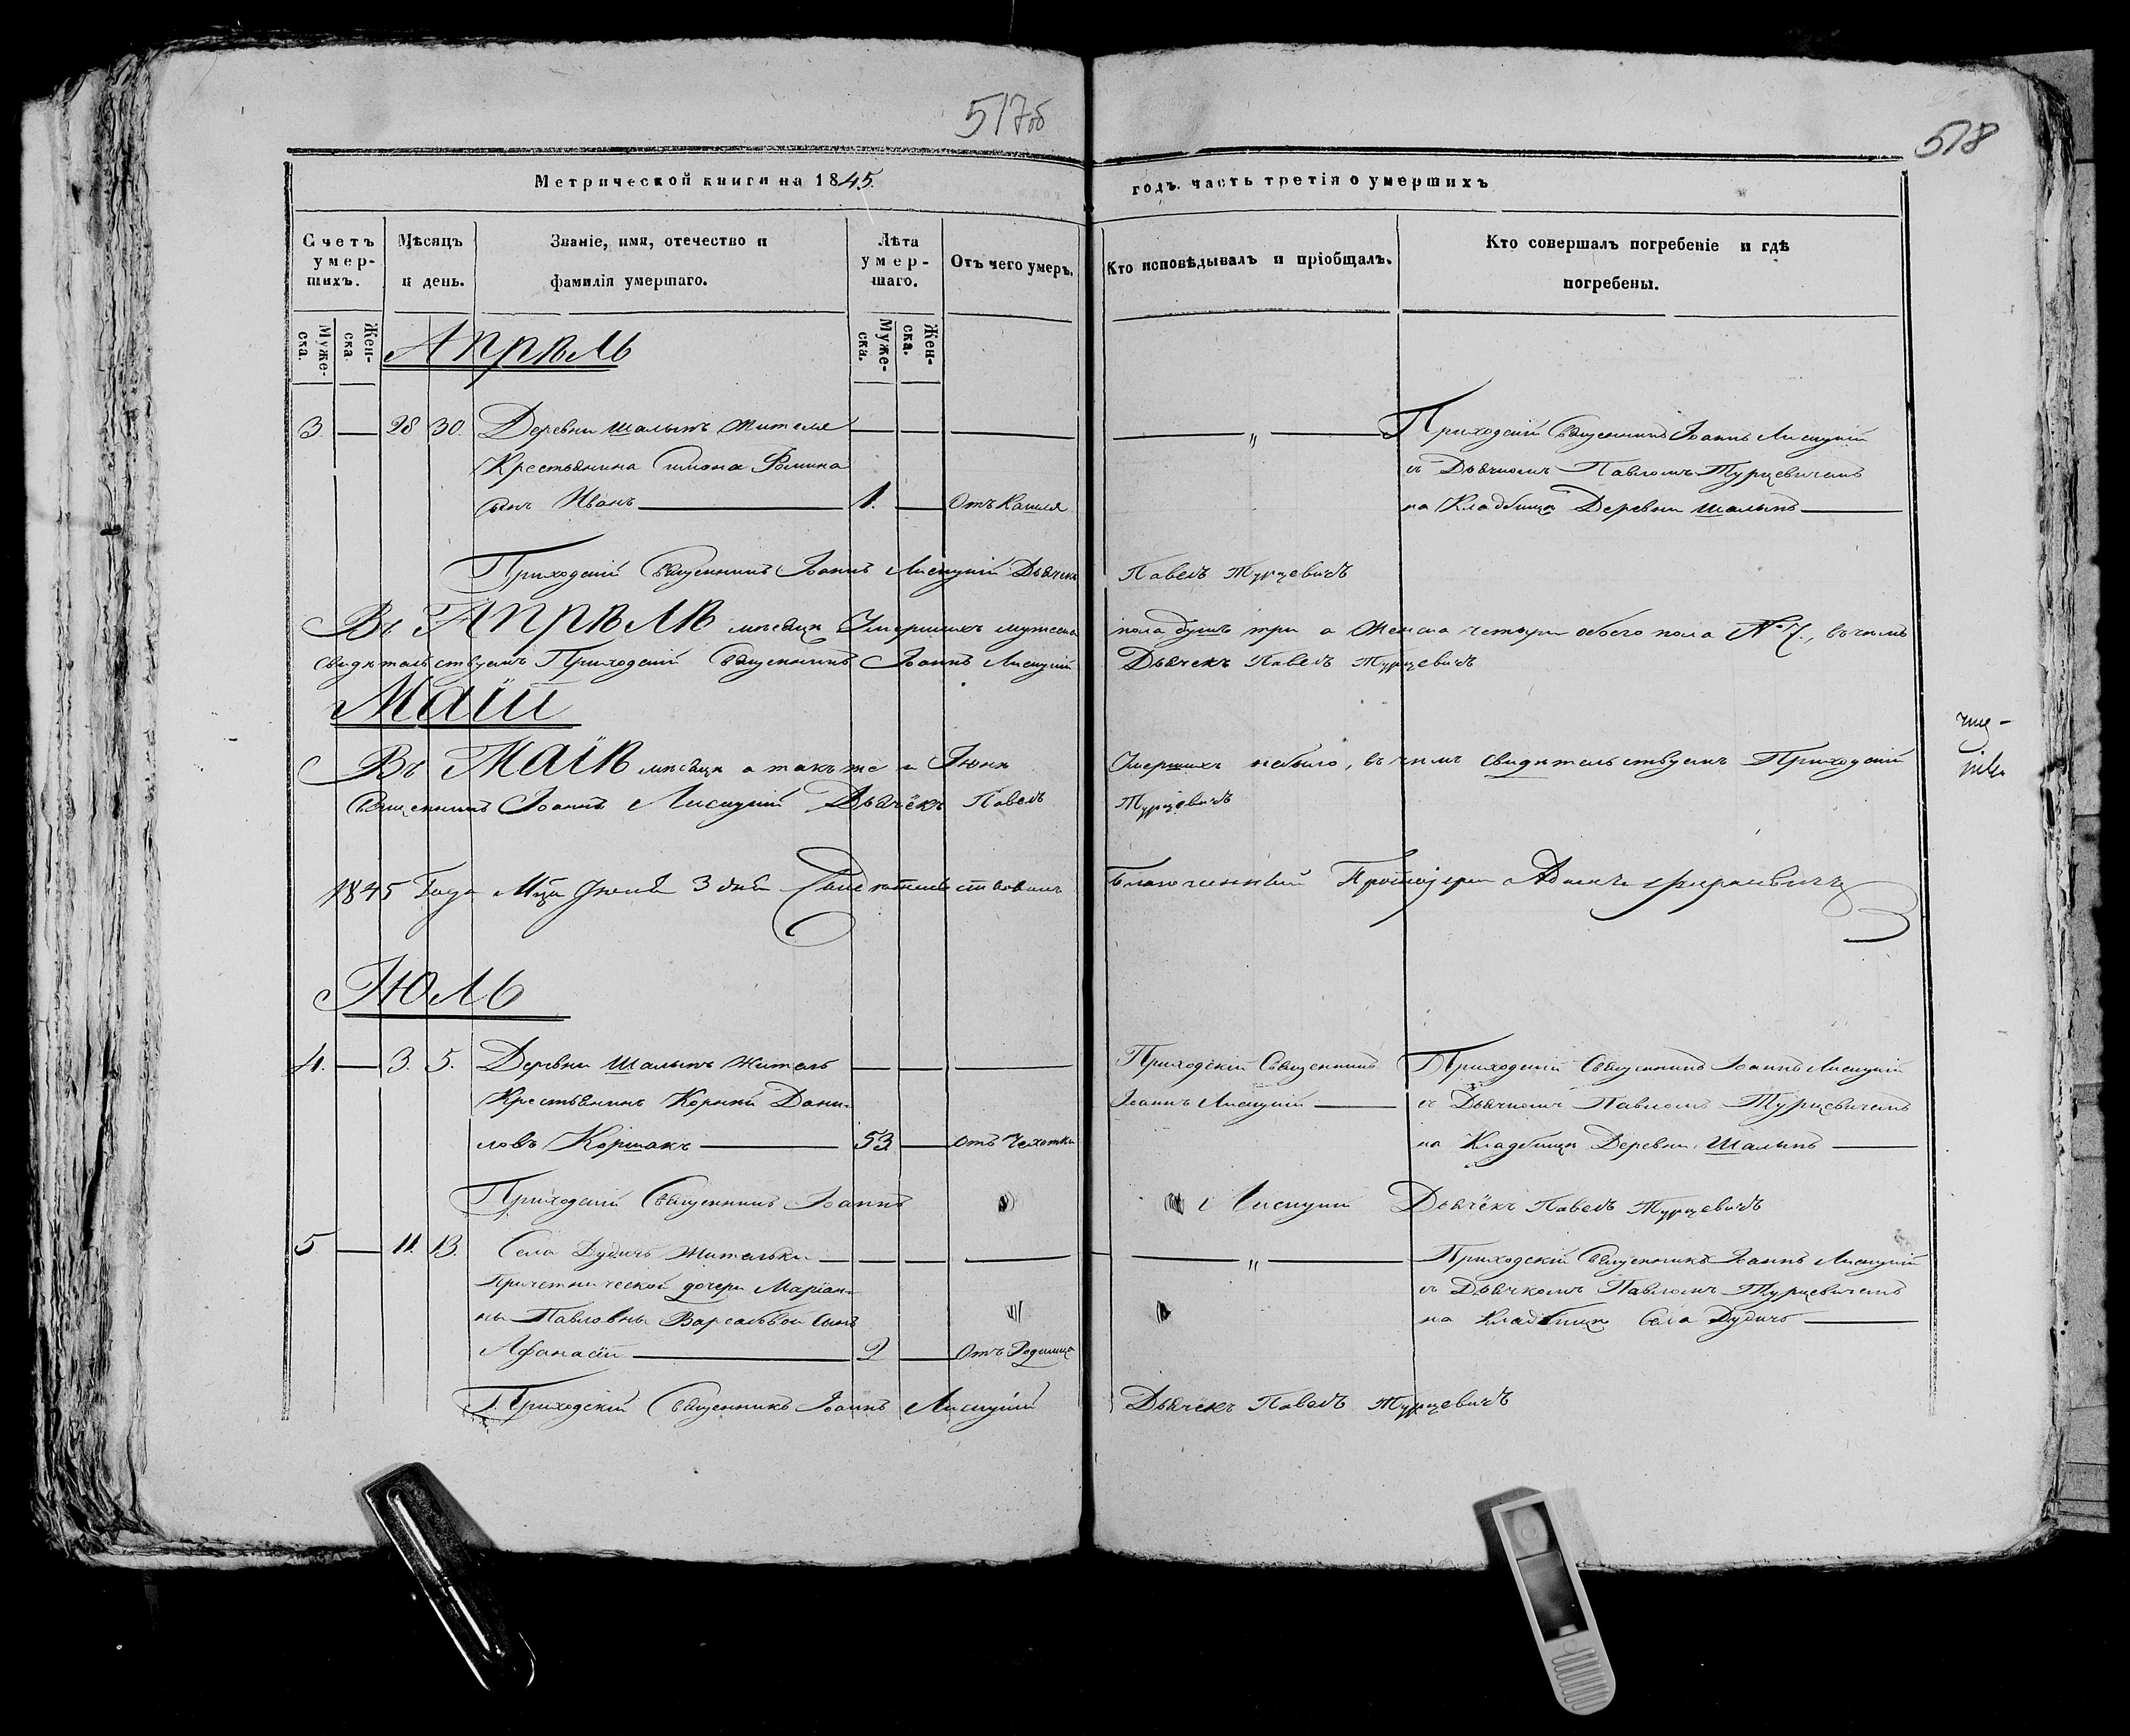 517об
Метрической книги на 1845.
Счетъ умер-шихъ.
Мѣсяцъ и день.
Званіе, имя, отечество и фамилія умершаго.
Лѣта умер-шаго.
Отъ чего умеръ.
Муже-ска.
Жен-ска.
Муже-ска.
Жен-ска.
Апрѣль
3 28 30. Деревни Шалыпъ жителя
Крестьянина Симона Фомина
сынъ Иванъ 1. Отъ Кашля
Приходскій Священникъ Іоаннъ Лисицкій Дьячекъ
Въ Апрѣлѣ мѣсяцѣ Умершихъ мужеска
свидѣтельствуемъ Приходскій Священникъ Іоаннъ Лисицкій
Маій
Въ Маіѣ мѣсяцѣ а также и Іюнѣ
Священникъ Іоаннъ Лисицкій Дьячёкъ Павелъ
1845 Года Мца Іюля 3 дня Свидѣтельствовалъ
Іюль
4. 3. 5. Деревни Шалыпъ житель
Крестьянинъ Корній Дани-
ловъ Коршакъ 53 отъ Чахотки
Приходскій Священникъ Іоаннъ
5 11. 13. Села Дудичъ жительки
Причетнической дочери Маріан-
ны Павловны сынъ
Афанасій 2 Отъ
Приходскій Священникъ Іоаннъ Лисицкій
518
годъ. часть третія о умершихъ
Кто исповѣдывалъ и пріобщалъ.
Кто совершалъ погребеніе и гдѣ погребены.
" Приходскій Священникъ Іоаннъ Лисицкій
съ Дьячкомъ Павломъ Турцевичемъ
на Кладбищѣ Деревни Шалыпъ
Павелъ Турцевичъ
пола душъ три а Женска четыри обоего пола № 7., въ чемъ
Дьячекъ Павелъ Турцевичъ
Умершихъ небыло, въ чемъ свидѣтельствуемъ Приходскій
Турцевичъ
Благочинный Протоіерей Адамъ
Приходскій Священникъ Приходскій Священникъ Іоаннъ Лисицкій
Іоаннъ Лисицкій съ Дьячкомъ Павломъ Турцевичемъ
на Кладбищѣ Деревни Шалыпъ
Лисицкій Дьячёкъ Павелъ Турцевичъ
" Приходскій Священникъ Іоаннъ Лисицкій
съ Дьячкомъ Павломъ Турцевичемъ
на Кладбищѣ Села Дудичъ
Дьячёкъ Павелъ Турцевичъ